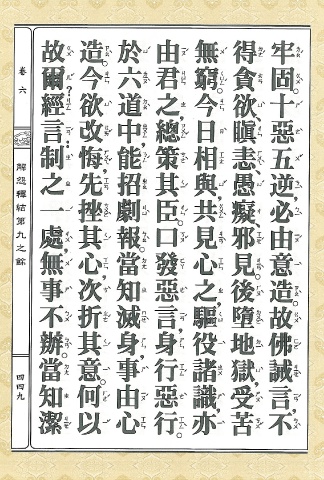 牢固。十惡五逆,必由意造。故佛誡言。不
得貪欲瞋恚、愚癡、邪見。後墮地獄,受苦
無窮。今日相與共見心之驅役諸識,亦
由君之總策其臣。口發惡言,身行惡行。
於六道中,能招劇報。當知滅身,事由心
造。今欲改悔,先挫其心,次折其意。何以
故爾?經言:制之一處,無事不辦。當知潔
卷六
解怨釋結第九之餘
四四九